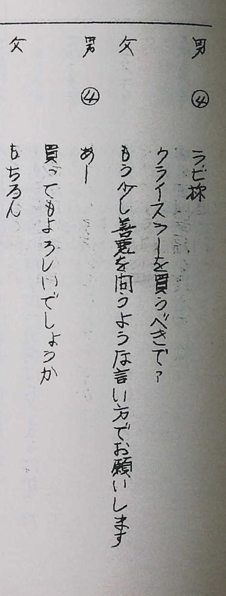 男④ ラビ様
クライスラーを買うべきで？
女 もう少し善悪を問うような言い方でお願いします
男④ あー
買ってもよろしいでしょうか
女 もちろん